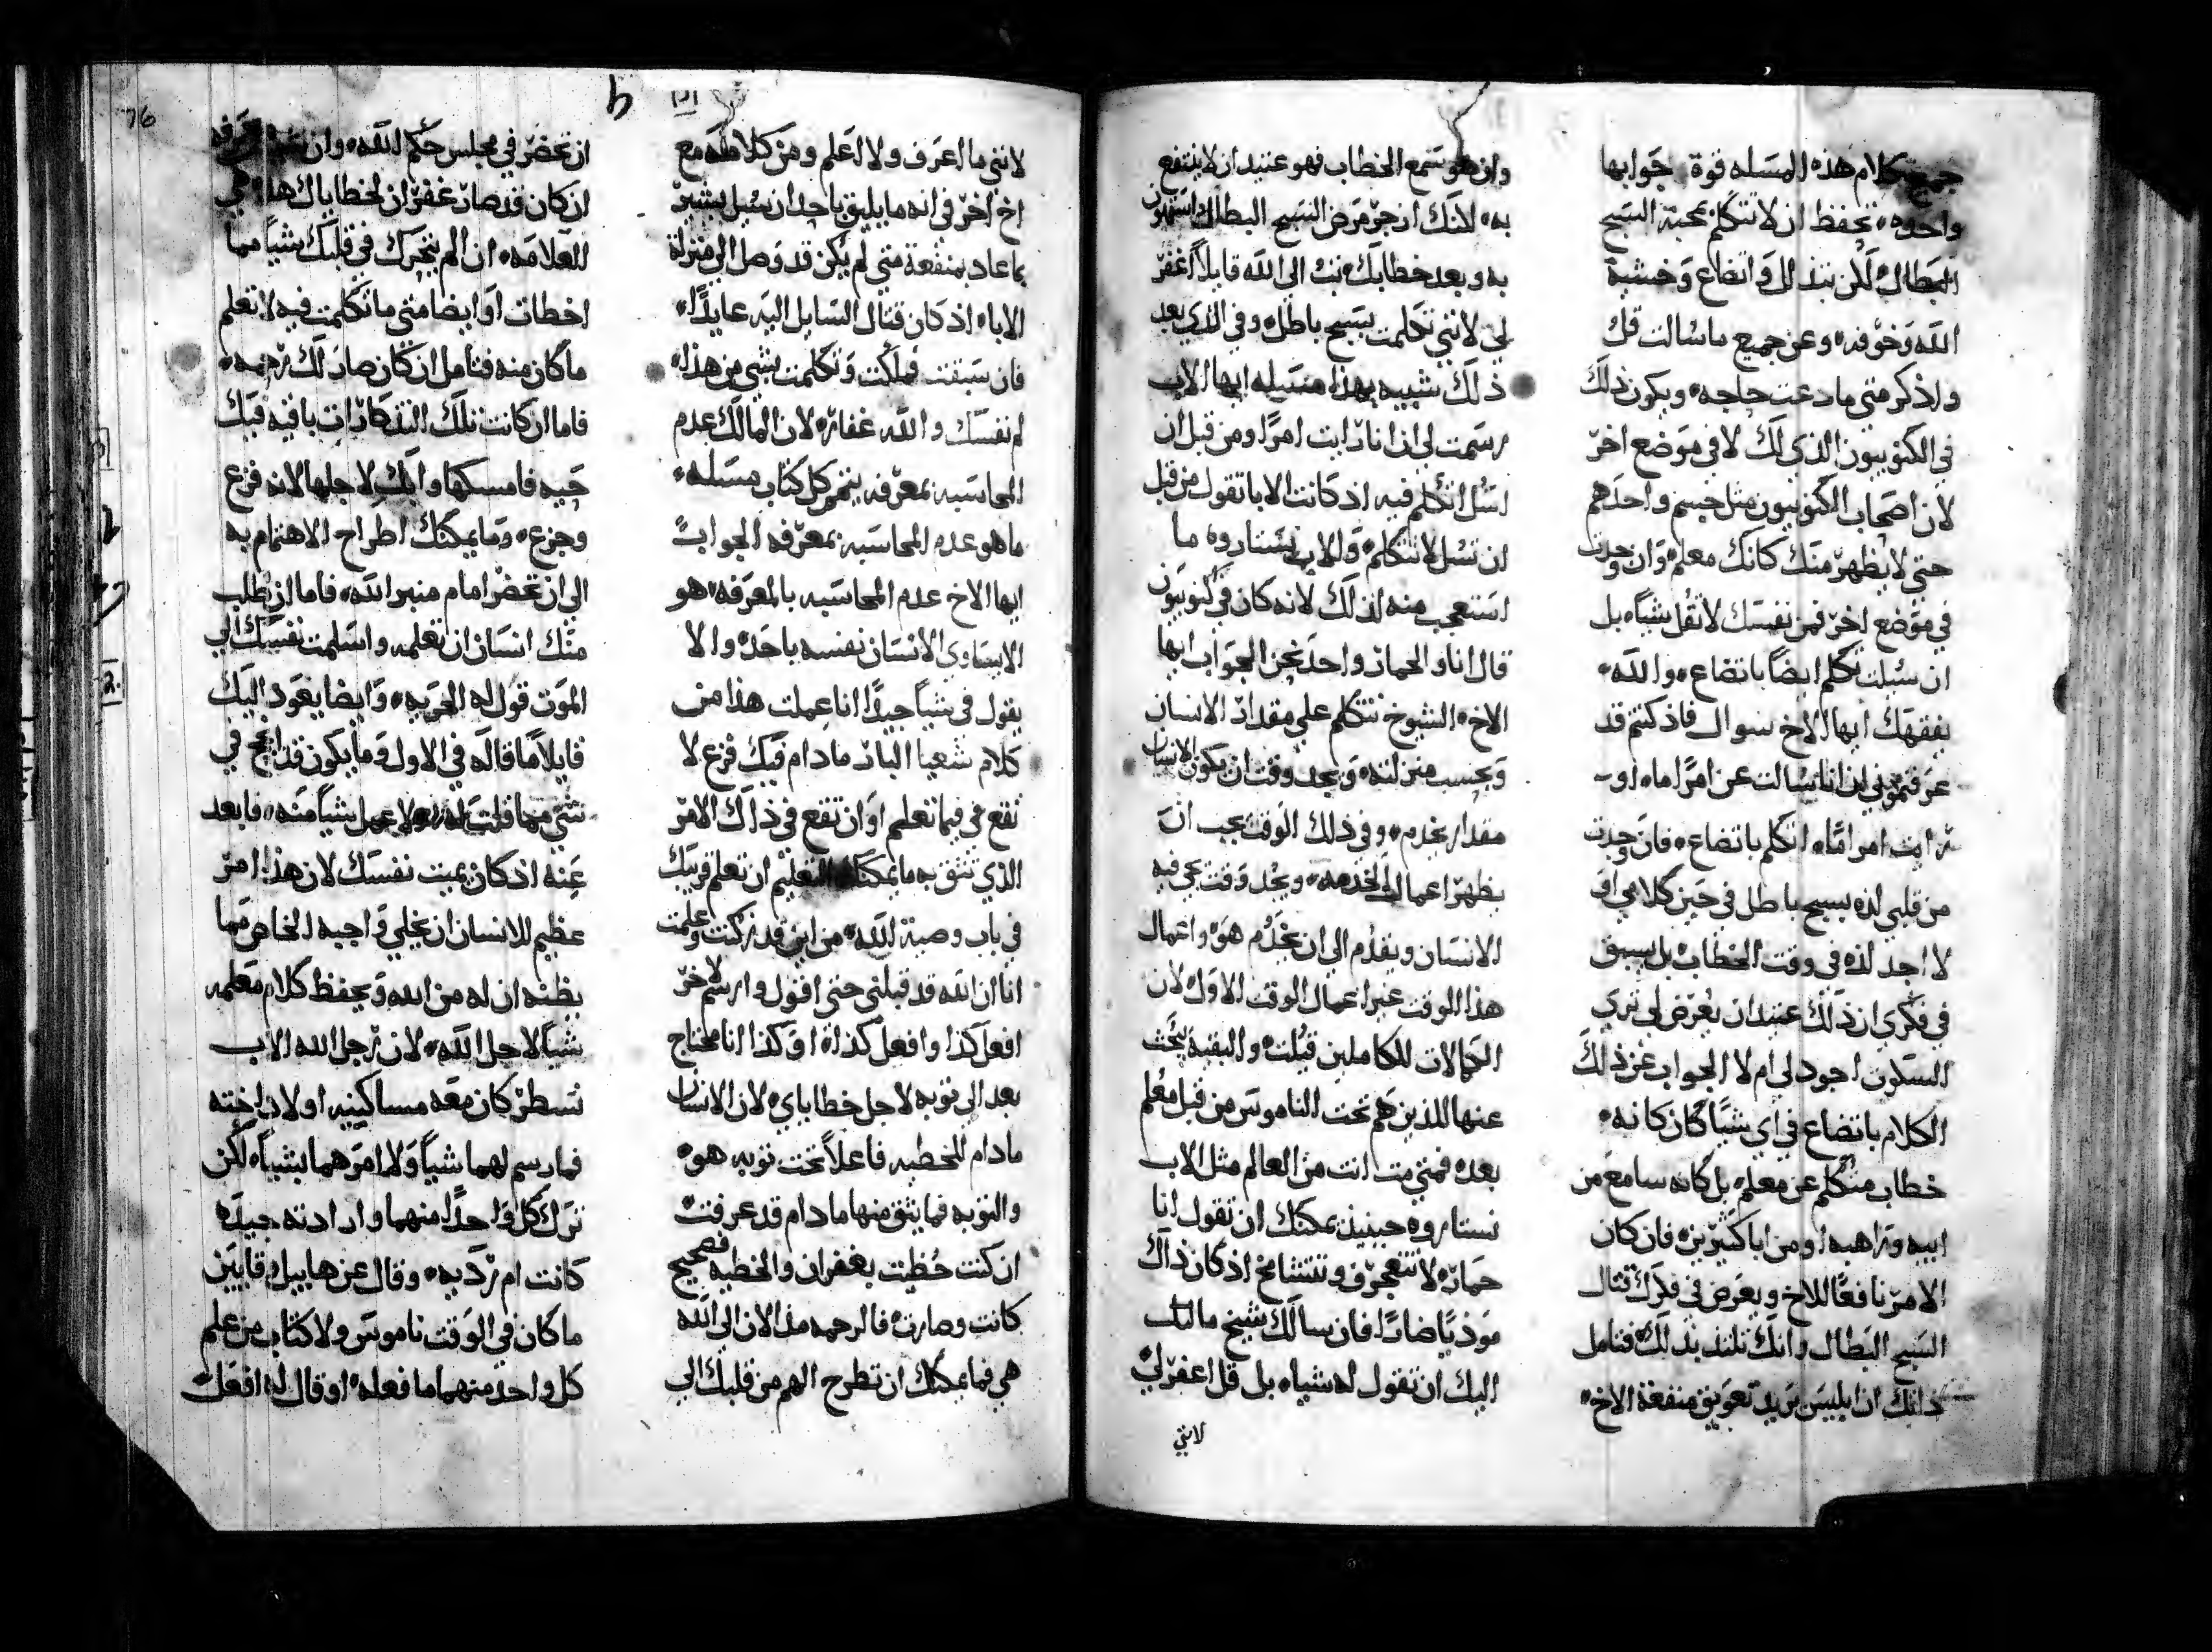 جميع كلام هذه المسله قوة جوابها
واحده تحفظ ان لا تتكلم بمحبة السبح
البطال لكن بتذلل واتضاع وخشية
الله وخوفه وعن جميع ما سالت قل
واذكر متي ما دعت حاجه ويكون ذلك
في الكنوبيون الذي لك لا في موضع اخر
لان اصحاب الكنوبيون مثل جسم واحد هم
حتي لا يظهر منك كانك معلم وان وجدت
في موضع اخر فمن نفسك لا تقل شياء بل
ان سُيلت تكلم ايضاً باتضاع والله
يفقهك ايها الاخ سوال فاذ كنتم قد
عرفتموني ان انا سالت عن امرًا ما او
رايت امر امّا اتكلم باتضاع فان وجدت
من قلبي لذه بسبح باطل في حين كلامي او
لا اجد لذه في وقت الخطاب بل يسبق
في فكري ان ذلك عتيد ان يعرض لي تري
السكوت اجود لي ام لا الجواب عن ذلك
الكلام باتضاع في اي شياً كان كانه
خطاب متكلم عن معلم بل كانه سامع من
ابيه وراهبه او من ابا كثيرين فان كان
الامر نافعًا للاخ ويعرض في فكرك قتال
السبح البطال وانك تلتذ بذلك فتامل
ذاتك ان ابليس يريد تعويق منفعة الاخ
وان هو سمع الخطاب فهو عتيد ان لا ينتفع
به لانك ان جز مرض السبح البطال استهون
به وبعد خطابك تب الى الله قايلاً اغفر
لي لانني تكلمت بسبح باطل وفي الذي بعد
ذلك شبيه بهذا مسيله ايها الاب
رسمت لي ان انا رايت امرًا ومن قبل ان
اسُل اتكلم فيه اذ كانت الابا تقول من قبل
ان تسُل لا تتكلم والاب نستاروه ما
استعجب منه لذلك لانه كان في كنوبيون
قال انا والحمار واحد نحن الجواب ايها
الاخ الشيوخ تتكلم علي مقدار الانسان
وبحسب منزلته ويجد وقت ان يكون الانسان
مقدار يخدم وفي ذلك الوقت يجب ان
يظهر اعمال الخدمه ويجد وقت يجي فيه
الانسان ويقدم الي ان يخدم هو واعمال
هذا الوقت غير اعمال الوقت الاول لان
الكمالات للكاملين قيلت والبقيه يبحث
عنها للذين هم تحت الناموس من قبل معلم
بعده فمتي مت انت من العالم مثل الاب
نستاروه حينيذ يمكنك ان تقول انا
حماره لا تتعجرف وتتشامخ اذ كان ذاك
موذيًا ضارًا فان سالك شيخ ما لتك
اليك ان تقول له شياء بل قل اغفر لي
لانني
لانني ما اعرف ولا اعلم ومن كلامه مع
اخ اخر في انه ما يليق باحد ان سُيل يشير
بما عاد بمنفعة متي لم يكن قد وصل الي منزلة
الابا اذ كان قتال السايل اليه عايدًا
فان سبقت فملكت وتكلمت بشي من هذا
لم نفسك والله غفاره لان المالك عدم
المحاسبه بمعرفه يتم كل كتاب مسله
ما هو عدم المحاسبه بمعرفه الجواب
ايها الاخ عدم المحاسبه بالمعرفه هو
الا يساوي الانسان نفسه باحد والا
يقول في شياً جيدًا انا عملت هذا من
كلام شعيا البار ما دام فيك فزع لا
تقع في فيما تعلم او ان تقع في ذلك الامر
الذي تثق به ما يمكنك التعليم ان تعلم قريبك
في باب وصية الله من اين قد زكنت وعلمت
انا ان الله قد قبلني حتي اقول وارسم لاخر
افعل كذا وافعل كذا او كذا انا محتاج
بعد الي توبه لاجل خطاياي لان الانسان
ما دام للخطيه فاعلاً تحت توبه هو
والتوبه فما يثق منها ما دام قد عرفت
ان كنت حُظيت بغفران والخطيه فصحيح
كانت وصارت فالرحمه مذ الان الي الله
هي فما يمكنك ان تطرح الهم من قلبك الي
ان تحضر في مجلس حكم الله وان
ان كان قد صار غفران لخطاياك هذا هي
العلامه ان لم يتحرك في قلبك شياً مما
اخطات او ايضا متي ما تكلمت فيه لا تعلم
ما كان منه فتامل ان كان صار لك رحمه
فاما ان كانت تلك التذكارات باقيه فيك
حيه فامسكها وابك لاجلها لانه فزع
وجزع وما يمكنك اطراح الاهتمام به
الي ان تحضر امام منبر الله فاما ان طلب
منك انسان ان تعلمه واسلمت نفسك الي
الموت قول له الحريه وايضا يعود اليك
قايلاً ما قاله في الاول وما يكون قد انجح في
شي مما قلت له ولا عمل شياً منه فابعد
عنه اذ كان يميت نفسك لان هذا امر
عظيم للانسان ان يخلي واجبه الخاص مما
يظنه ان له من الله ويحفظ كلام معلمه
شياً لاجل الله لان رجل الله الاب
نسطر كان معه مساكنيه اولاد اخته
فما رسم لهما شياً ولا امرهما بشياء لكن
ترك كل واحدًا منهما وارادته جيده
كانت ام رديه وقال عن هابيل وقايين
ما كان في الوقت ناموس ولا كتاب من علم
كل واحد منهما ما فعله او قال له افعل